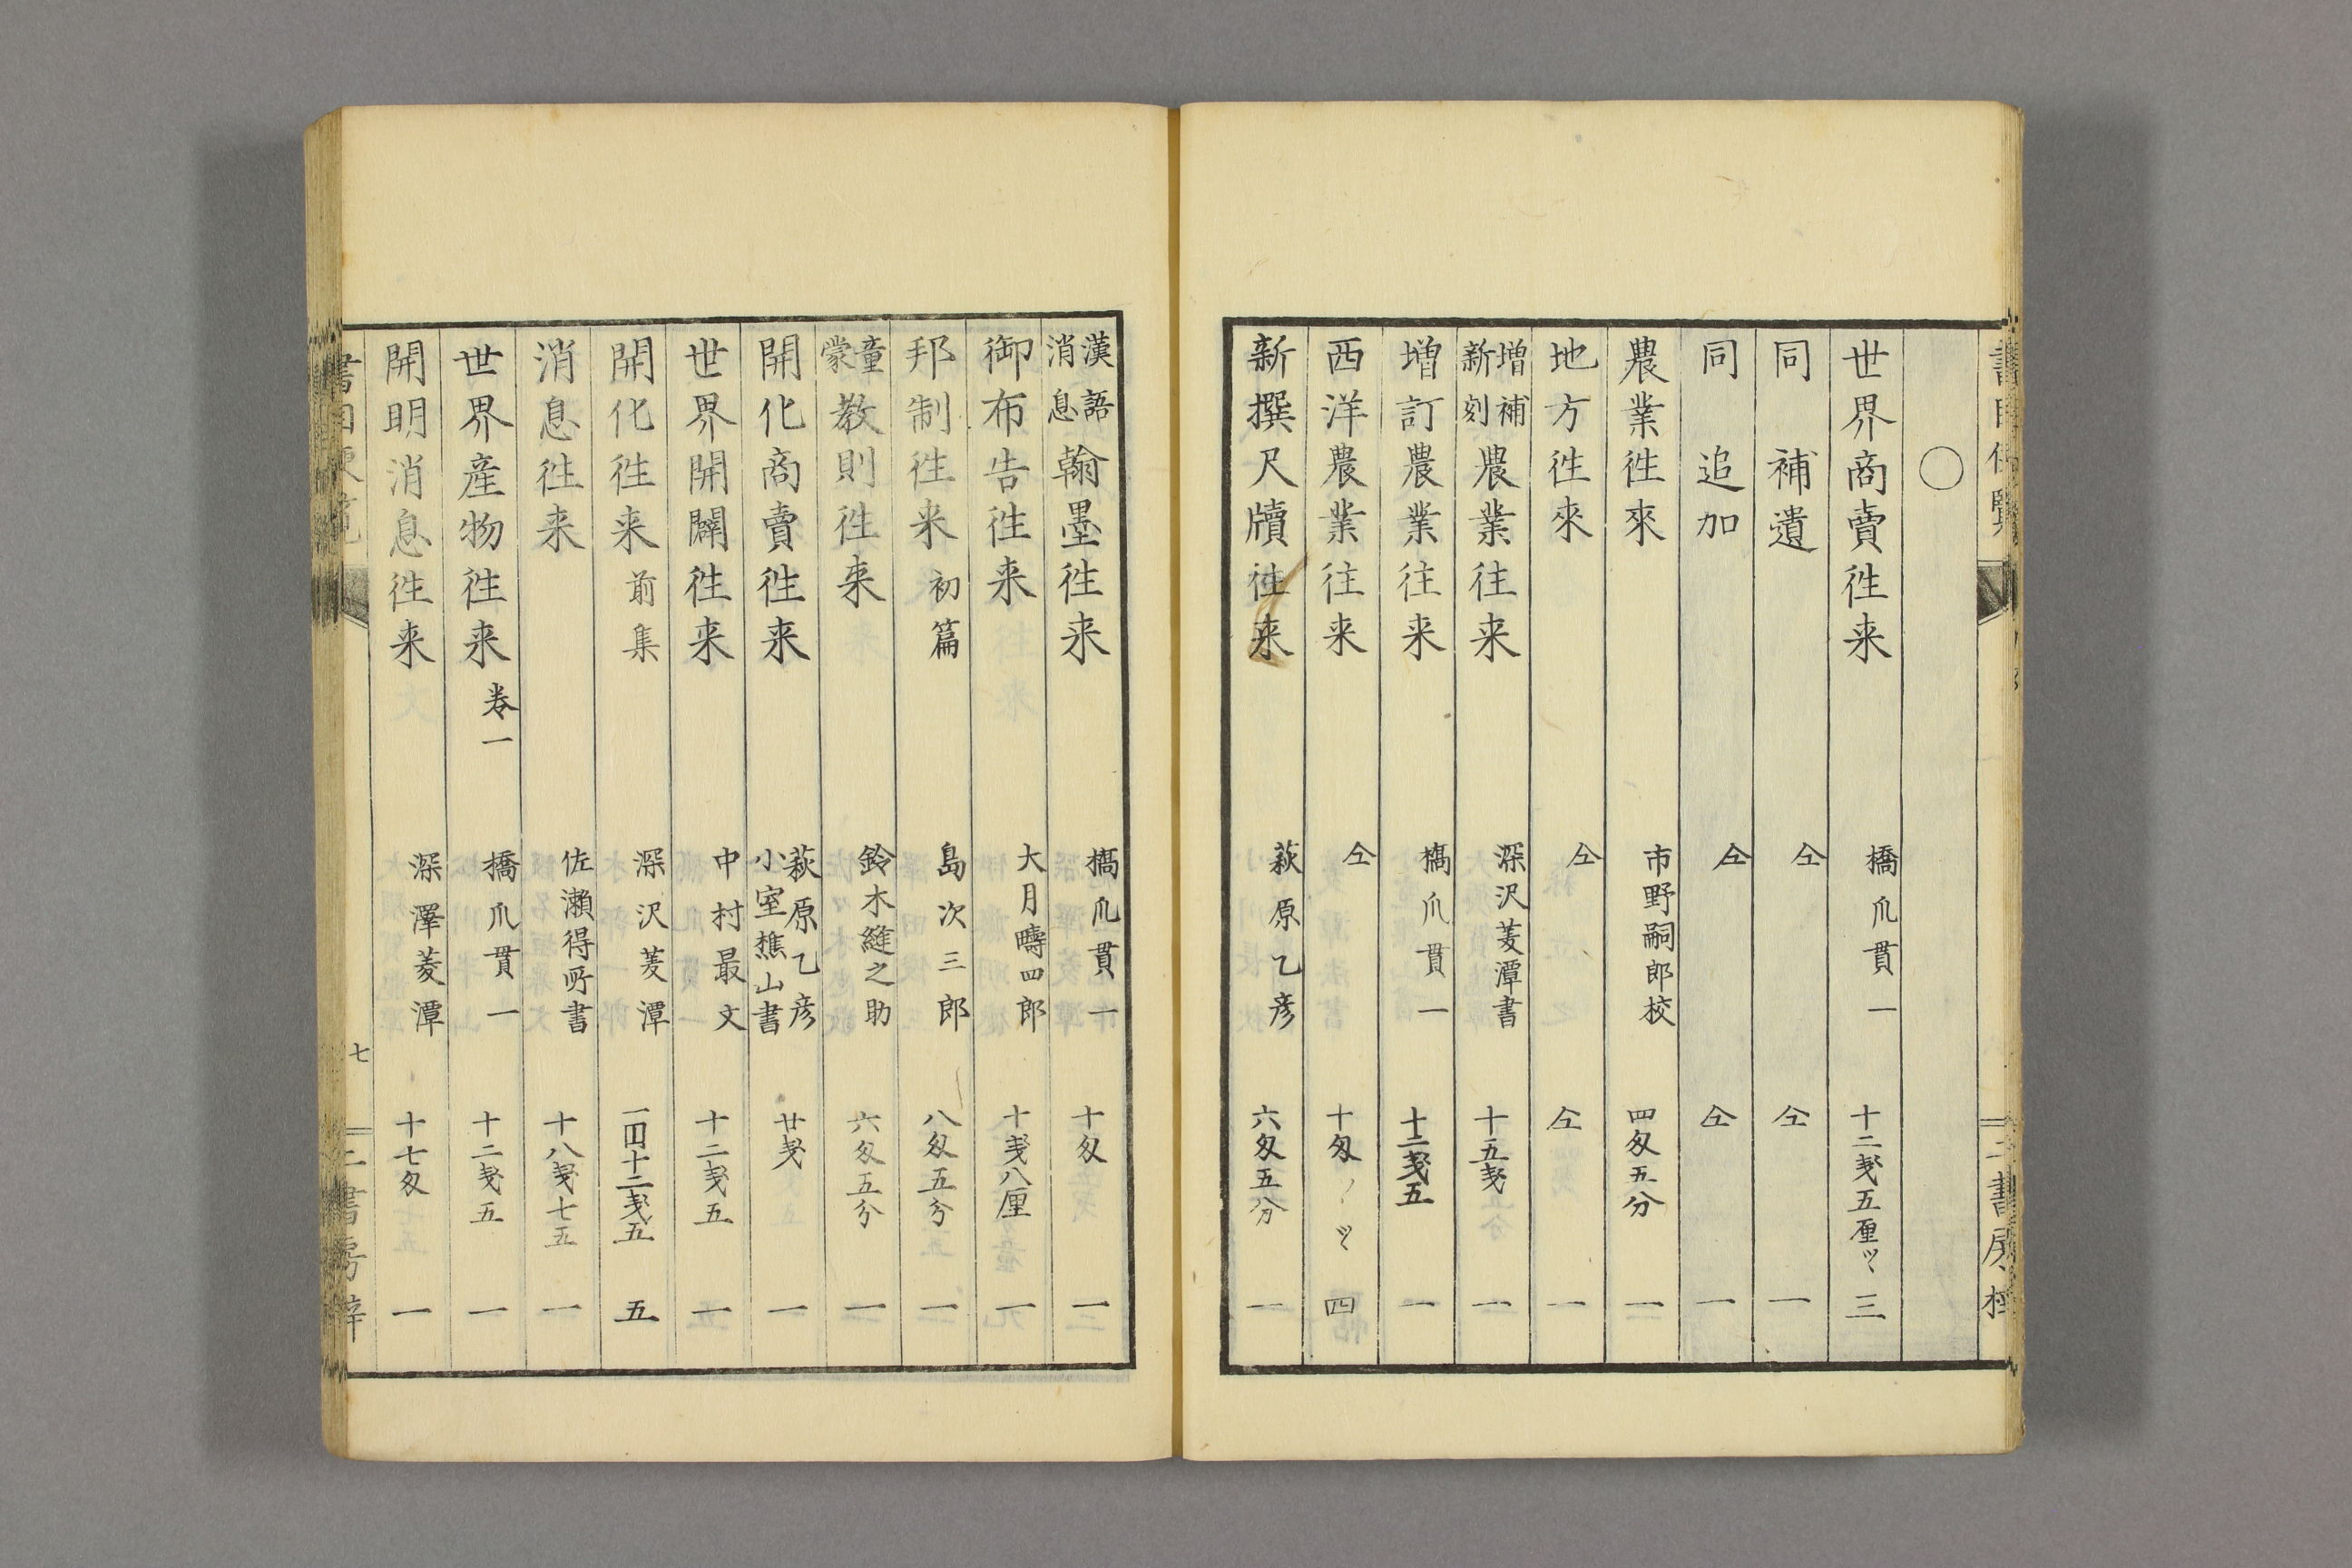 〇
世界商賣徃来 橋爪貫一 十二匁五厘ツヽ 三
同 補遺 仝 仝 一
同 追加 仝 仝 一
農業徃來 市野嗣郎校 四匁五分 一
地方徃來 仝 仝 一
増補新刻 農業往来 深沢菱潭書 十五匁 一
増訂農業往来 橋爪貫一 十二匁五 一
西洋農業往来 仝 十匁ツヽ 四
新撰尺牘徃来 萩原乙彦 六匁五分 一
漢語消息 翰墨徃来 橋爪貫一 十匁 一
御布告徃来 大月疇四郎 十匁八厘 一
邦制徃来 初篇 島次三郎 八匁五分 一
童蒙教則徃来 鈴木縫之助 六匁五分 一
開化商賣徃来 萩原乙彦 小室樵山書 廿匁 一
世界開闢徃来 中村最文 十二匁五 一
開化徃来 前集 深沢菱潭 一円十二匁五 五
消息徃来 佐瀬得所書 十八匁七五 一
世界産物徃来 巻一 橋爪貫一 十二匁五 一
開明消息徃来 深澤菱潭 十七匁 一
七